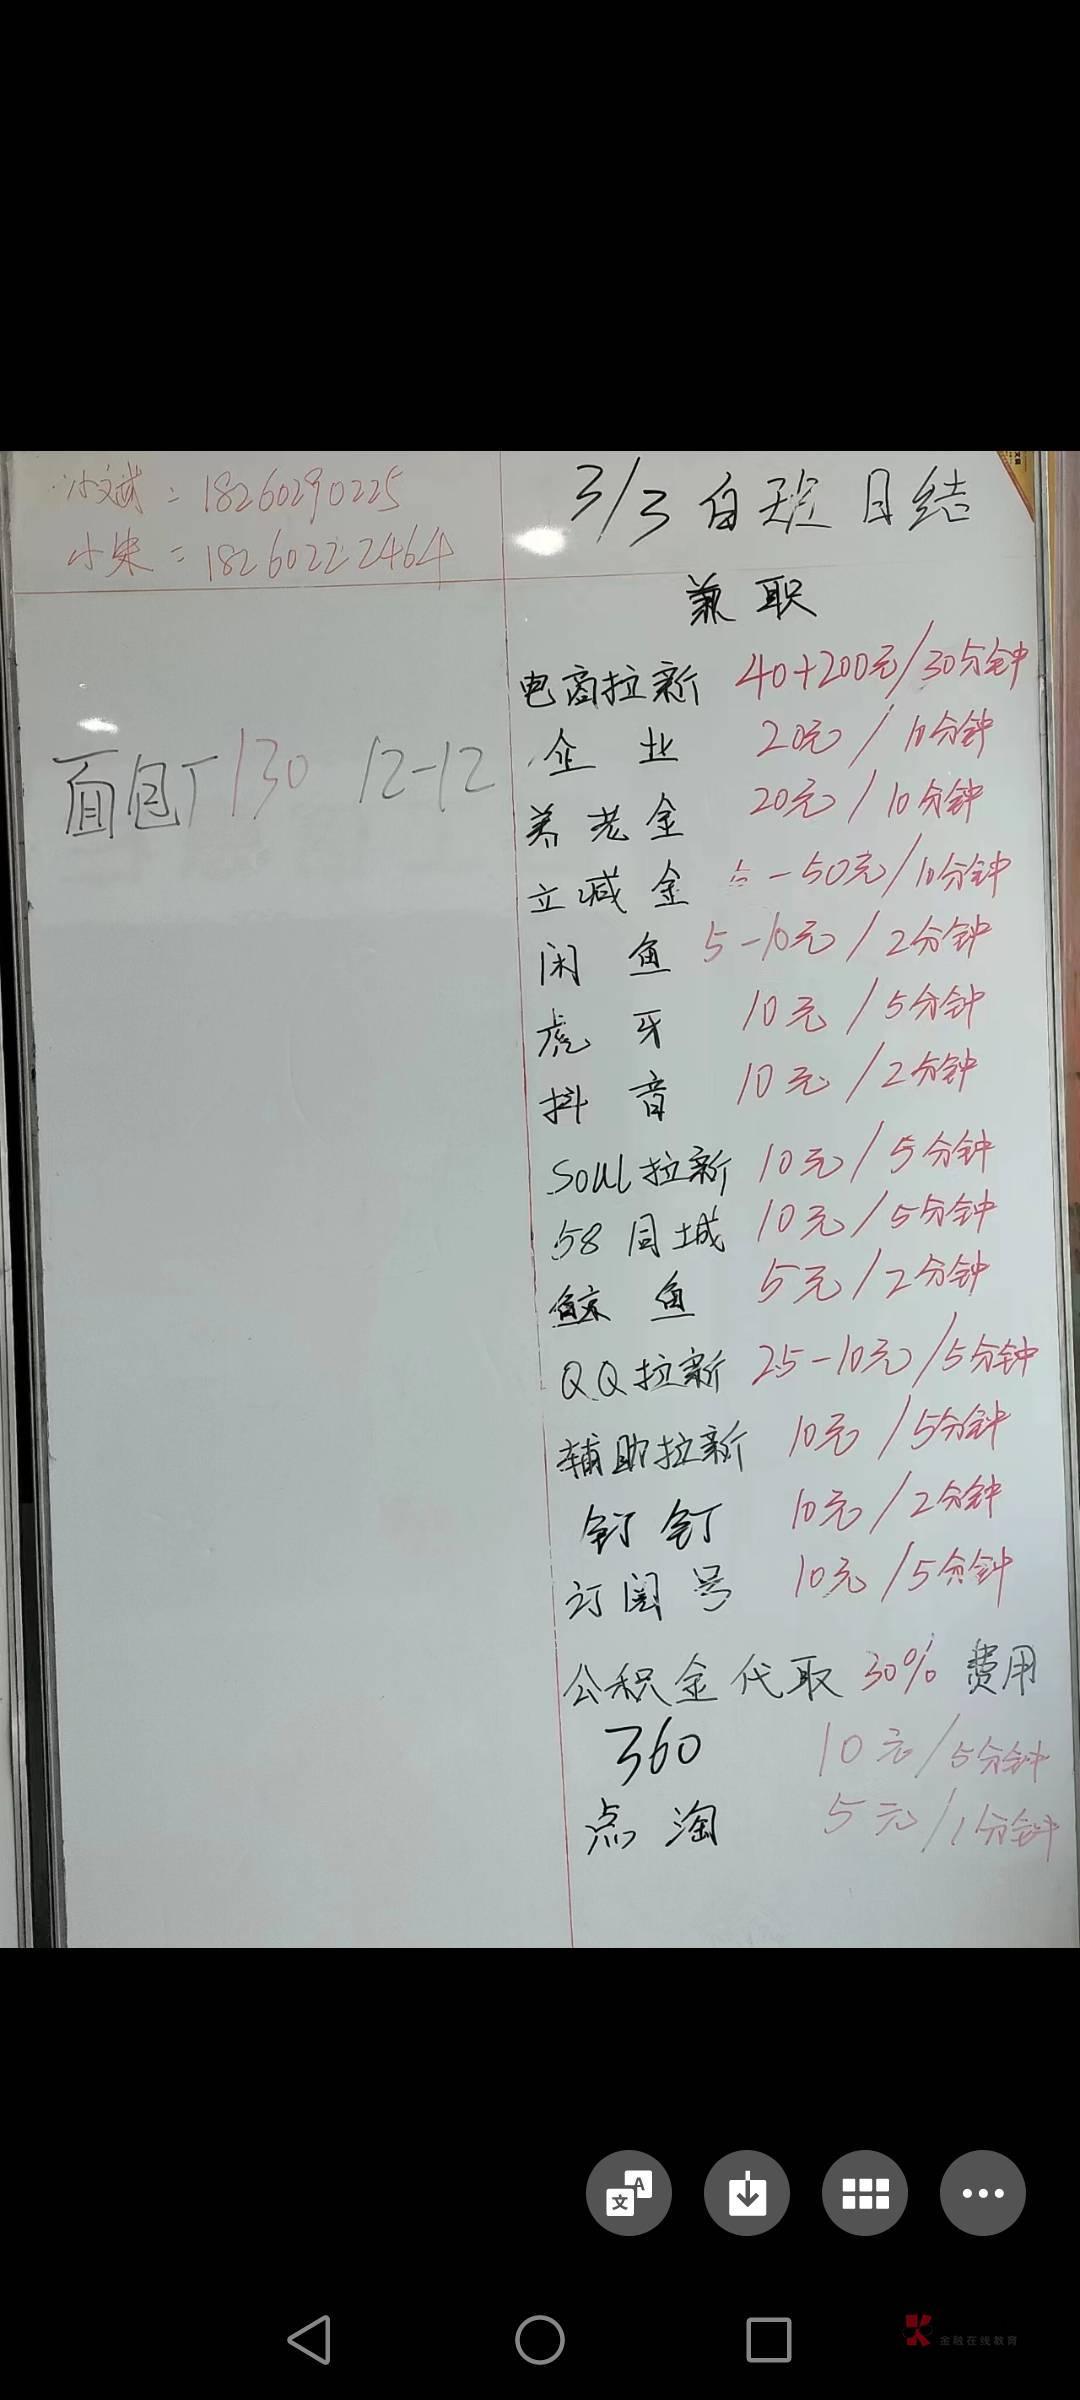 小文斌：18260290225
小朱：18260222464
3/3 白班 日结
兼职
面包厂130 12-12
电商拉新 40+200元/30分钟
企业 20元/10分钟
养老金 20元/10分钟
立减金 -50元/10分钟
闲鱼 5-10元/2分钟
虎牙 10元/5分钟
抖音 10元/2分钟
SOUL拉新 10元/5分钟
58同城 10元/5分钟
鲸鱼 5元/2分钟
QQ拉新 25-10元/5分钟
辅助拉新 10元/5分钟
钉钉 10元/2分钟
订阅号 10元/5分钟
公积金代取 30% 费用
360 10元/5分钟
点淘 5元/1分钟
金融在线教育